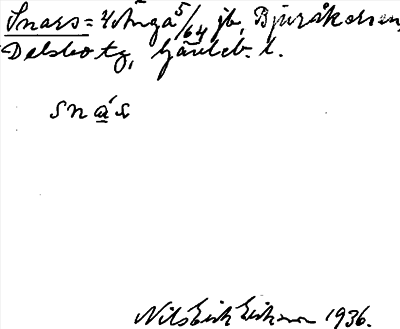 Snars = 4 Ånga 5/64 jb, Bjuråkers sn,
Delsbo tg, Gävleb. l.
snás
Nils Erik Eriksson 1936.